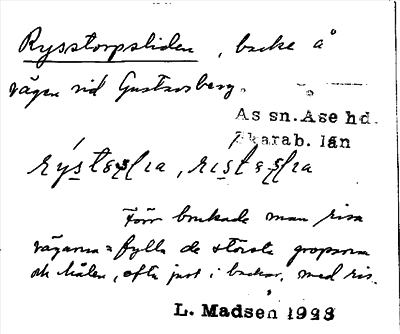 Rysstorpsliden, backe å
vägen vid Gustavsberg.
Ås sn. Åse hd.
Skarab. län
Förr brukade man risa
vägarna = fylla de största groparna
och hålen, ofta just i backar, med ris.
L. Madsén 1928